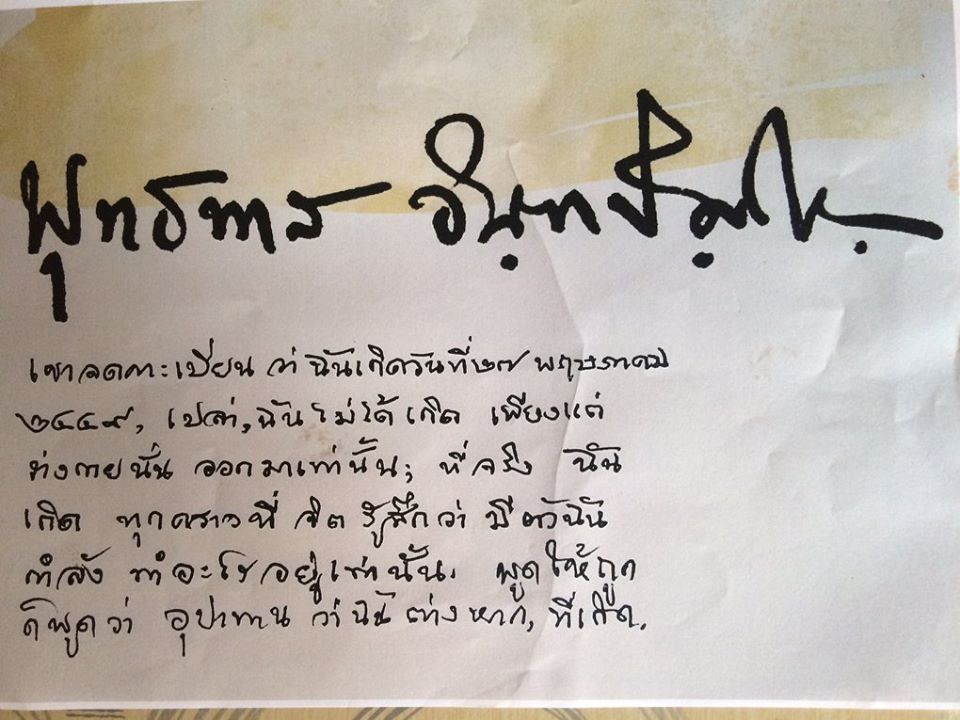 พุทธทาส อินฺทปัญฺโญ.
เขาจดทะเบียน ว่า ฉันเกิดวันที่ ๒๗ พฤษภาคม
๒๔๔๙, เปล่า, ฉันไม่ได้เกิด เพียงแต่
ร่างกายนั้น ออกมาเท่านั้น; ที่จริง ฉัน
เกิด ทุกคราวที่ จิตรู้สึกว่า มีตัวฉัน
กำลัง ทำอะไรอยู่เท่านั้น. พูดให้ถูก
ก็พูดว่า อุปาทาน ว่าฉัน ต่างหาก, ที่เกิด.